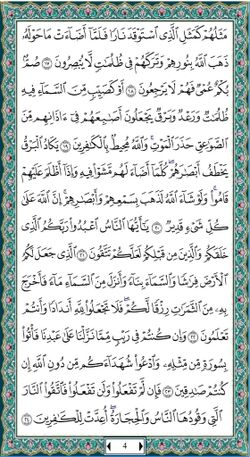 مَثَلُهُمْ كَمَثَلِ ٱلَّذِى ٱسْتَوْقَدَ نَارًا فَلَمَّآ أَضَآءَتْ مَا حَوْلَهُۥ
ذَهَبَ ٱللَّهُ بِنُورِهِمْ وَتَرَكَهُمْ فِى ظُلُمَـٰتٍ لَّا يُبْصِرُونَ ﴿١٧﴾ صُمٌّۢ
بُكْمٌ عُمْىٌ فَهُمْ لَا يَرْجِعُونَ ﴿١٨﴾ أَوْ كَصَيِّبٍ مِّنَ ٱلسَّمَآءِ فِيهِ
ظُلُمَـٰتٌ وَرَعْدٌ وَبَرْقٌ يَجْعَلُونَ أَصَـٰبِعَهُمْ فِىٓ ءَاذَانِهِم مِّنَ
ٱلصَّوَٰعِقِ حَذَرَ ٱلْمَوْتِ ۚ وَٱللَّهُ مُحِيطٌۢ بِٱلْكَـٰفِرِينَ ﴿١٩﴾ يَكَادُ ٱلْبَرْقُ
يَخْطَفُ أَبْصَـٰرَهُمْ ۖ كُلَّمَآ أَضَآءَ لَهُم مَّشَوْا۟ فِيهِ وَإِذَآ أَظْلَمَ عَلَيْهِمْ
قَامُوا۟ ۚ وَلَوْ شَآءَ ٱللَّهُ لَذَهَبَ بِسَمْعِهِمْ وَأَبْصَـٰرِهِمْ ۚ إِنَّ ٱللَّهَ عَلَىٰ
كُلِّ شَىْءٍ قَدِيرٌ ﴿٢٠﴾ يَـٰٓأَيُّهَا ٱلنَّاسُ ٱعْبُدُوا۟ رَبَّكُمُ ٱلَّذِى
خَلَقَكُمْ وَٱلَّذِينَ مِن قَبْلِكُمْ لَعَلَّكُمْ تَتَّقُونَ ﴿٢١﴾ ٱلَّذِى جَعَلَ لَكُمُ
ٱلْأَرْضَ فِرَٰشًا وَٱلسَّمَآءَ بِنَآءً وَأَنزَلَ مِنَ ٱلسَّمَآءِ مَآءً فَأَخْرَجَ
بِهِۦ مِنَ ٱلثَّمَرَٰتِ رِزْقًا لَّكُمْ ۖ فَلَا تَجْعَلُوا۟ لِلَّهِ أَندَادًا وَأَنتُمْ
تَعْلَمُونَ ﴿٢٢﴾ وَإِن كُنتُمْ فِى رَيْبٍ مِّمَّا نَزَّلْنَا عَلَىٰ عَبْدِنَا فَأْتُوا۟
بِسُورَةٍ مِّن مِّثْلِهِۦ وَٱدْعُوا۟ شُهَدَآءَكُم مِّن دُونِ ٱللَّهِ إِن
كُنتُمْ صَـٰدِقِينَ ﴿٢٣﴾ فَإِن لَّمْ تَفْعَلُوا۟ وَلَن تَفْعَلُوا۟ فَٱتَّقُوا۟ ٱلنَّارَ
ٱلَّتِى وَقُودُهَا ٱلنَّاسُ وَٱلْحِجَارَةُ ۖ أُعِدَّتْ لِلْكَـٰفِرِينَ ﴿٢٤﴾
4